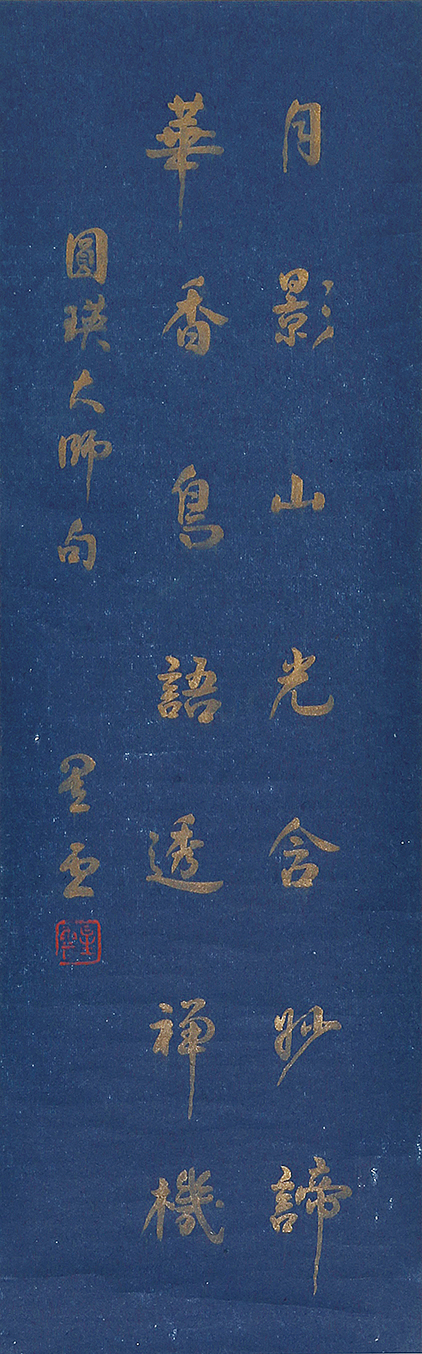 月影山光含妙諦
華香鳥語透禅機
圓瑛大師句